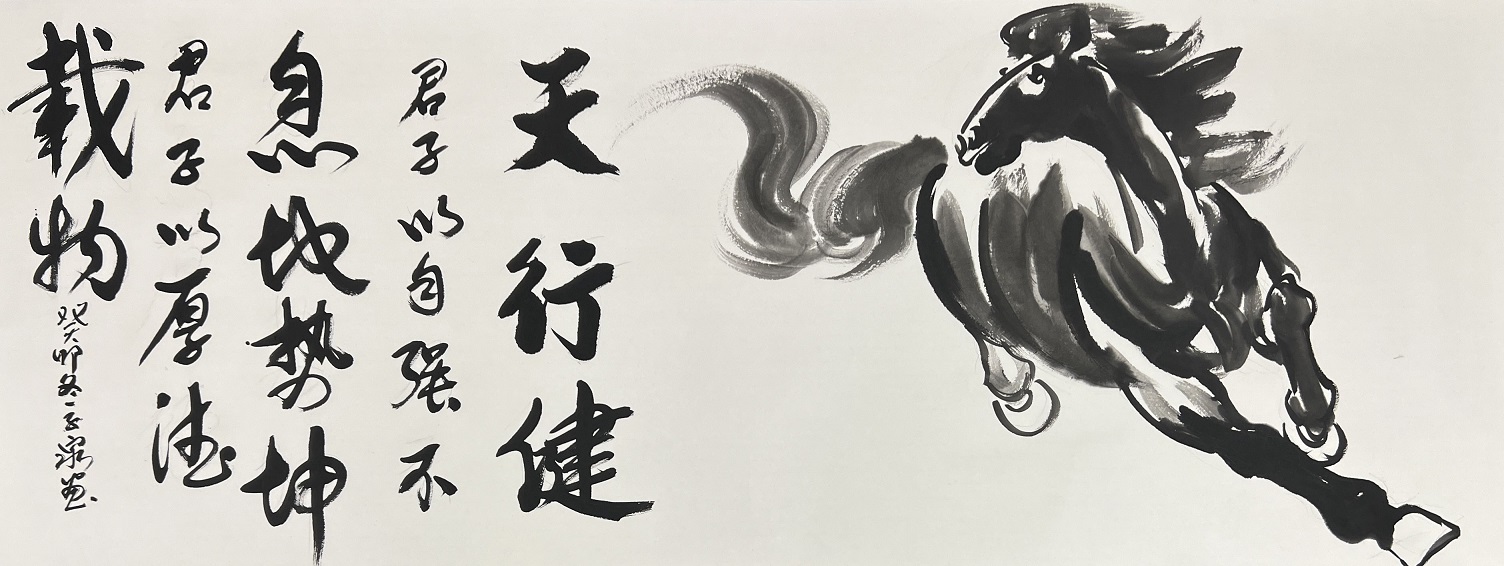 天行健
君子以自强不
息地势坤
君子以厚德
载物
癸卯冬一